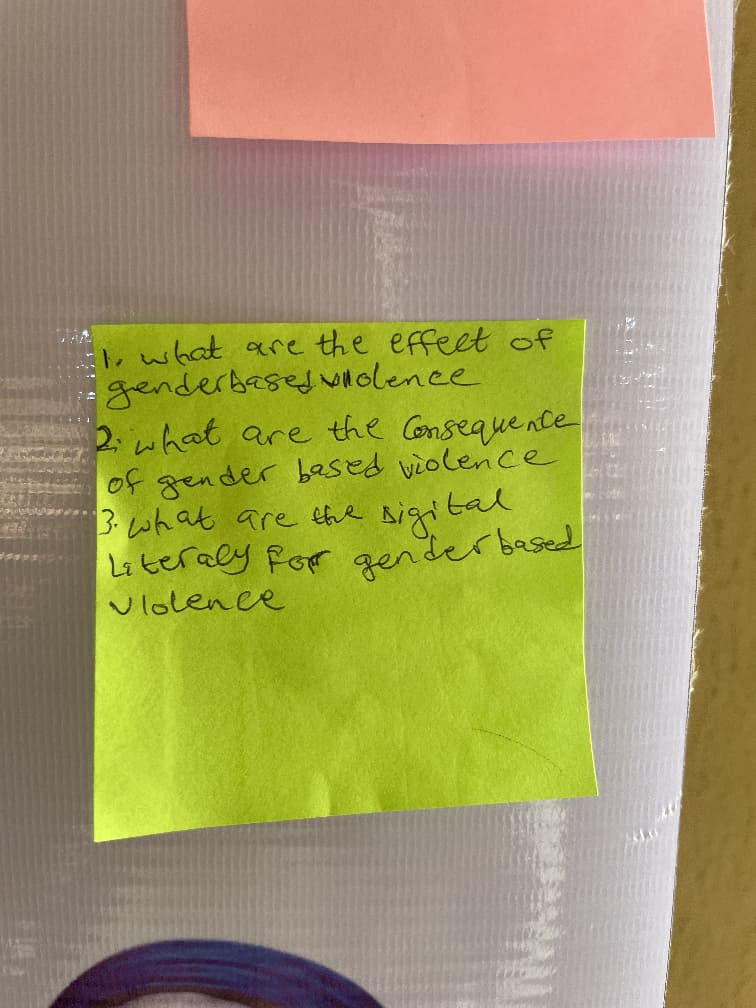 1. what are the effect of
genderbased violence
2. what are the Consequence
of gender based violence
3. what are the Digital
Literacy For gender based
Violence